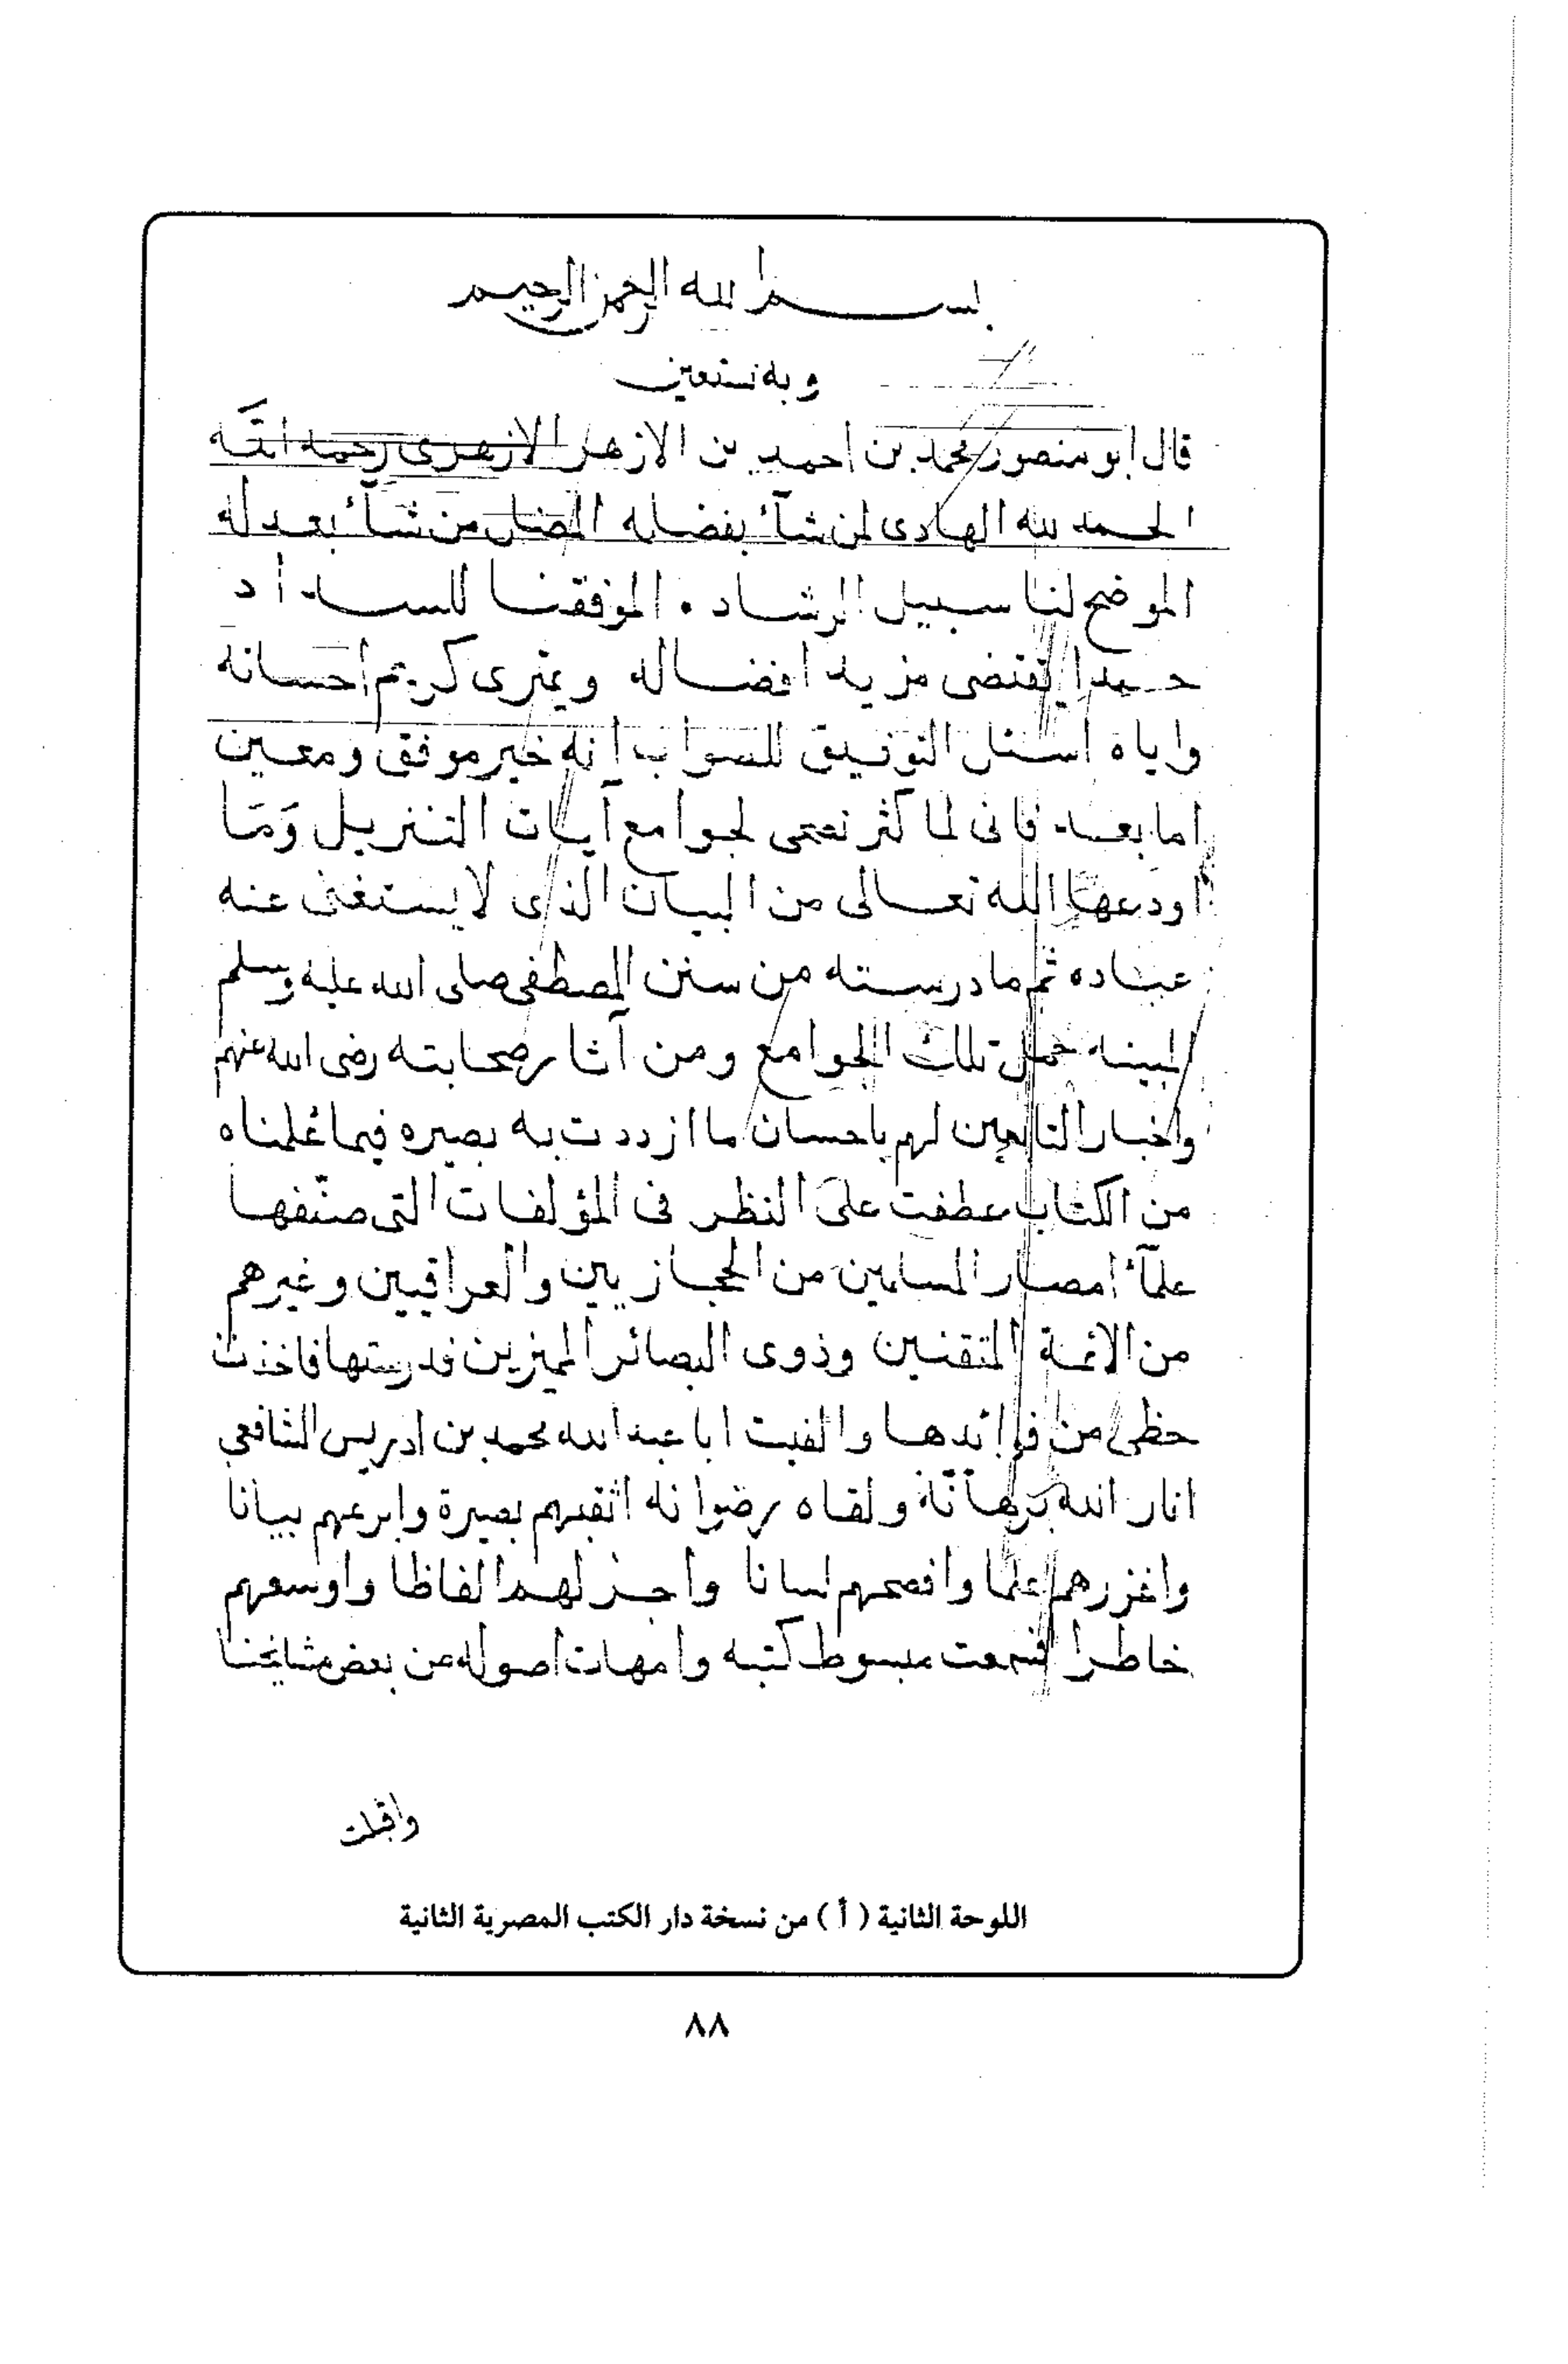 بسم الله الرحمن الرحيم
وبه نستعين
قال ابو منصور محمد بن احمد بن الازهر الازهرى رحمه الله
الحمد لله الهادى لمن شآء بفضله المضل من شآء بعدله
الموضح لنا سبيل الرشاد . الموفقنا للسداد
حمدا يقتضى مزيد افضاله ويمترى كريم احسانه
واياه اسئل التوفيق للصواب انه خير موفق ومعين
اما بعد فانى لما كثر تصفحى لجوامع آيات التنزيل وَمَا
اودعها الله تعالى من البيان الذى لا يستغنى عنه
عباده ثم ما درسته من سنن المصطفى صلى الله عليه وسلم
المبينه جمل تلك الجوامع ومن آثار صحابته رضى الله عنهم
واخبار التابعين لهم باحسان ما ازددت به بصيره فيما علمناه
من الكتاب عطفت على النظر فى المؤلفات التى صنّفها
علمآء امصار المسلمين من الحجازيين والعراقيين وغيرهم
من الائمة المتقنين وذوى البصائر المميزين فدرستها فاخذت
حظى من فوائدها والفيت ابا عبد الله محمد بن ادريس الشافعي
انار الله برهانه ولقاه رضوانه اثقبهم بصيرة وابرعهم بيانا
واغزرهم علما وافصحهم لسانا واجزلهم الفاظا واوسعهم
خاطرا فسمعت مبسوط كتبه وامهات اصوله من بعض مشايخنا
واقبلت
اللوحة الثانية ( أ ) من نسخة دار الكتب المصرية الثانية
٨٨